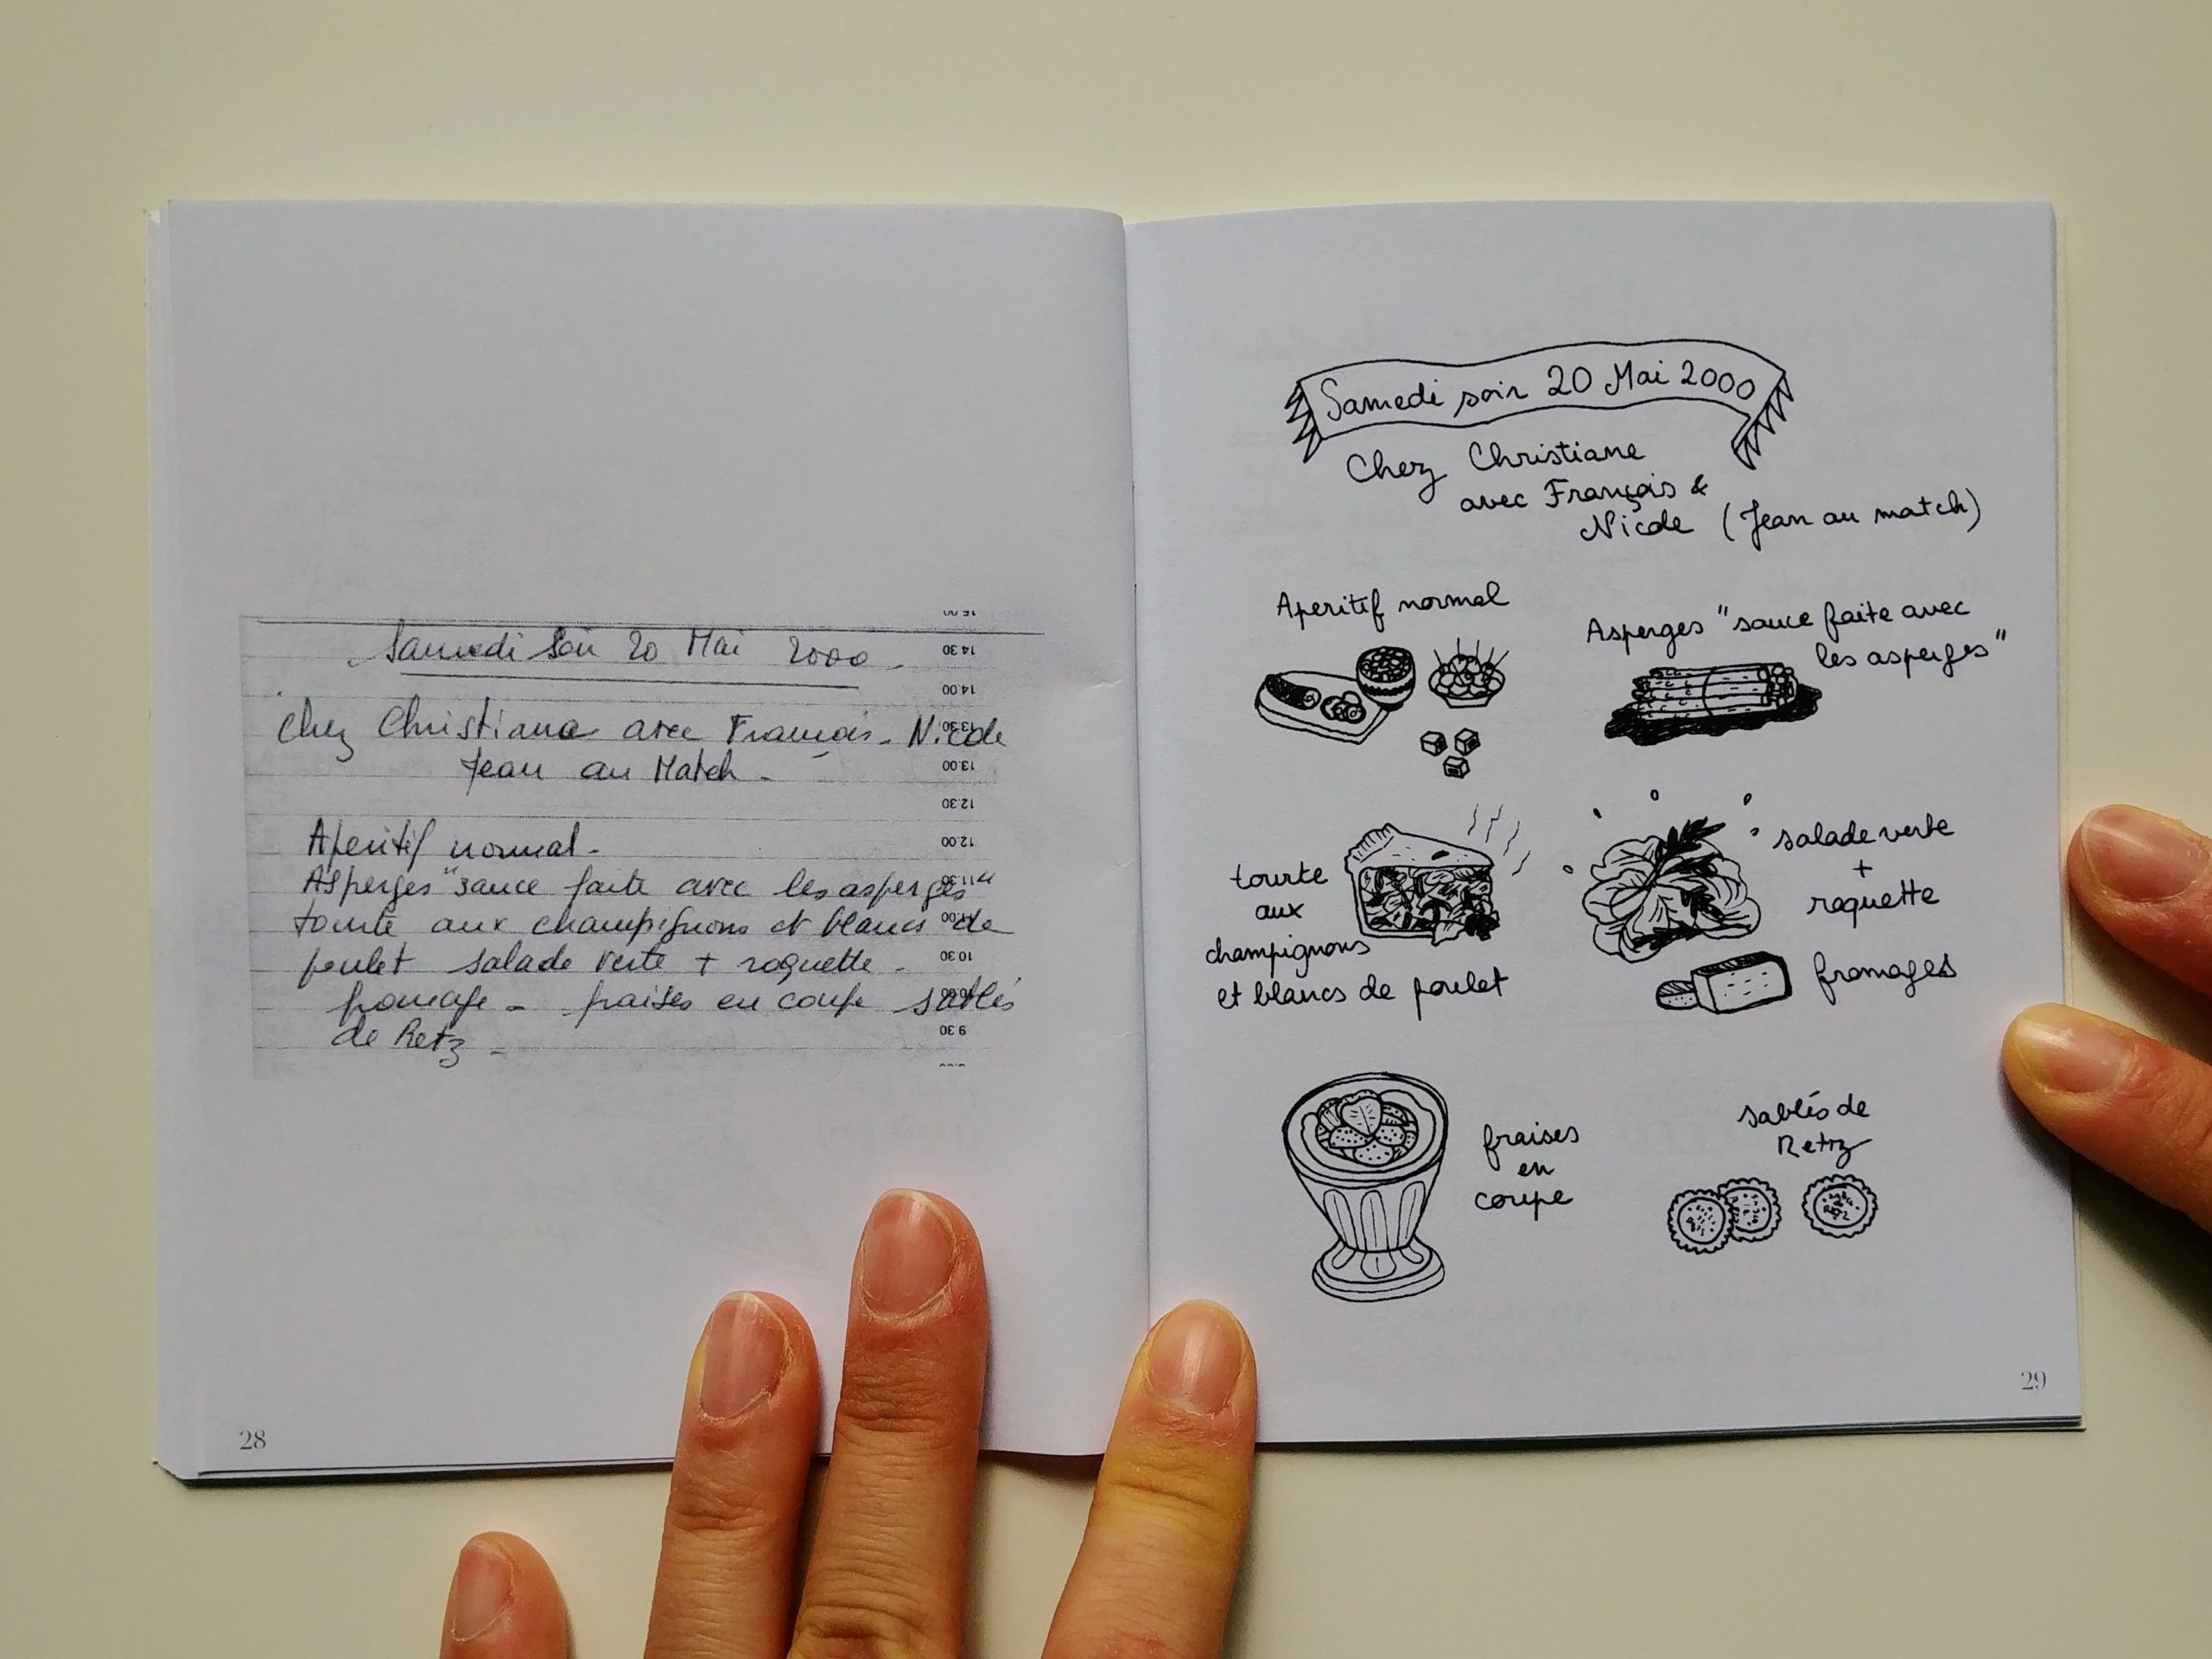 Samedi Soir 20 Mai 2000.
Chez Christiane avec François. Nicole
Jean au Match.
Aperitif normal.
Asperges "sauce faite avec les asperges"
tourte aux champignons et blancs de
poulet salade verte + roquette.
fromage - fraises en coupe sablés
de Retz.
15.00
14 30
14.00
13.30
13.00
12.30
12.00
11.30
11.00
10 30
10.00
9 30
28
Samedi soir 20 Mai 2000
Chez Christiane
avec François &
Nicole (Jean au match)
Aperitif normal
Asperges "sauce faite avec
les asperges"
tourte
aux
champignons
et blancs de poulet
salade verte
+
roquette
fromages
fraises
en
coupe
sablés de
Retz
29